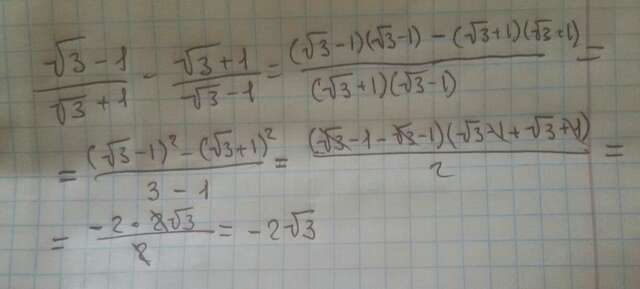 (√3 - 1)/(√3 + 1) - (√3 + 1)/(√3 - 1) = ((√3 - 1)(√3 - 1) - (√3 + 1)(√3 + 1))/((√3 + 1)(√3 - 1)) =
= ((√3 - 1)² - (√3 + 1)²)/(3 - 1) = ((√3 - 1 - √3 - 1)(√3 - 1 + √3 + 1))/2 =
= (-2 · 2√3)/2 = -2√3